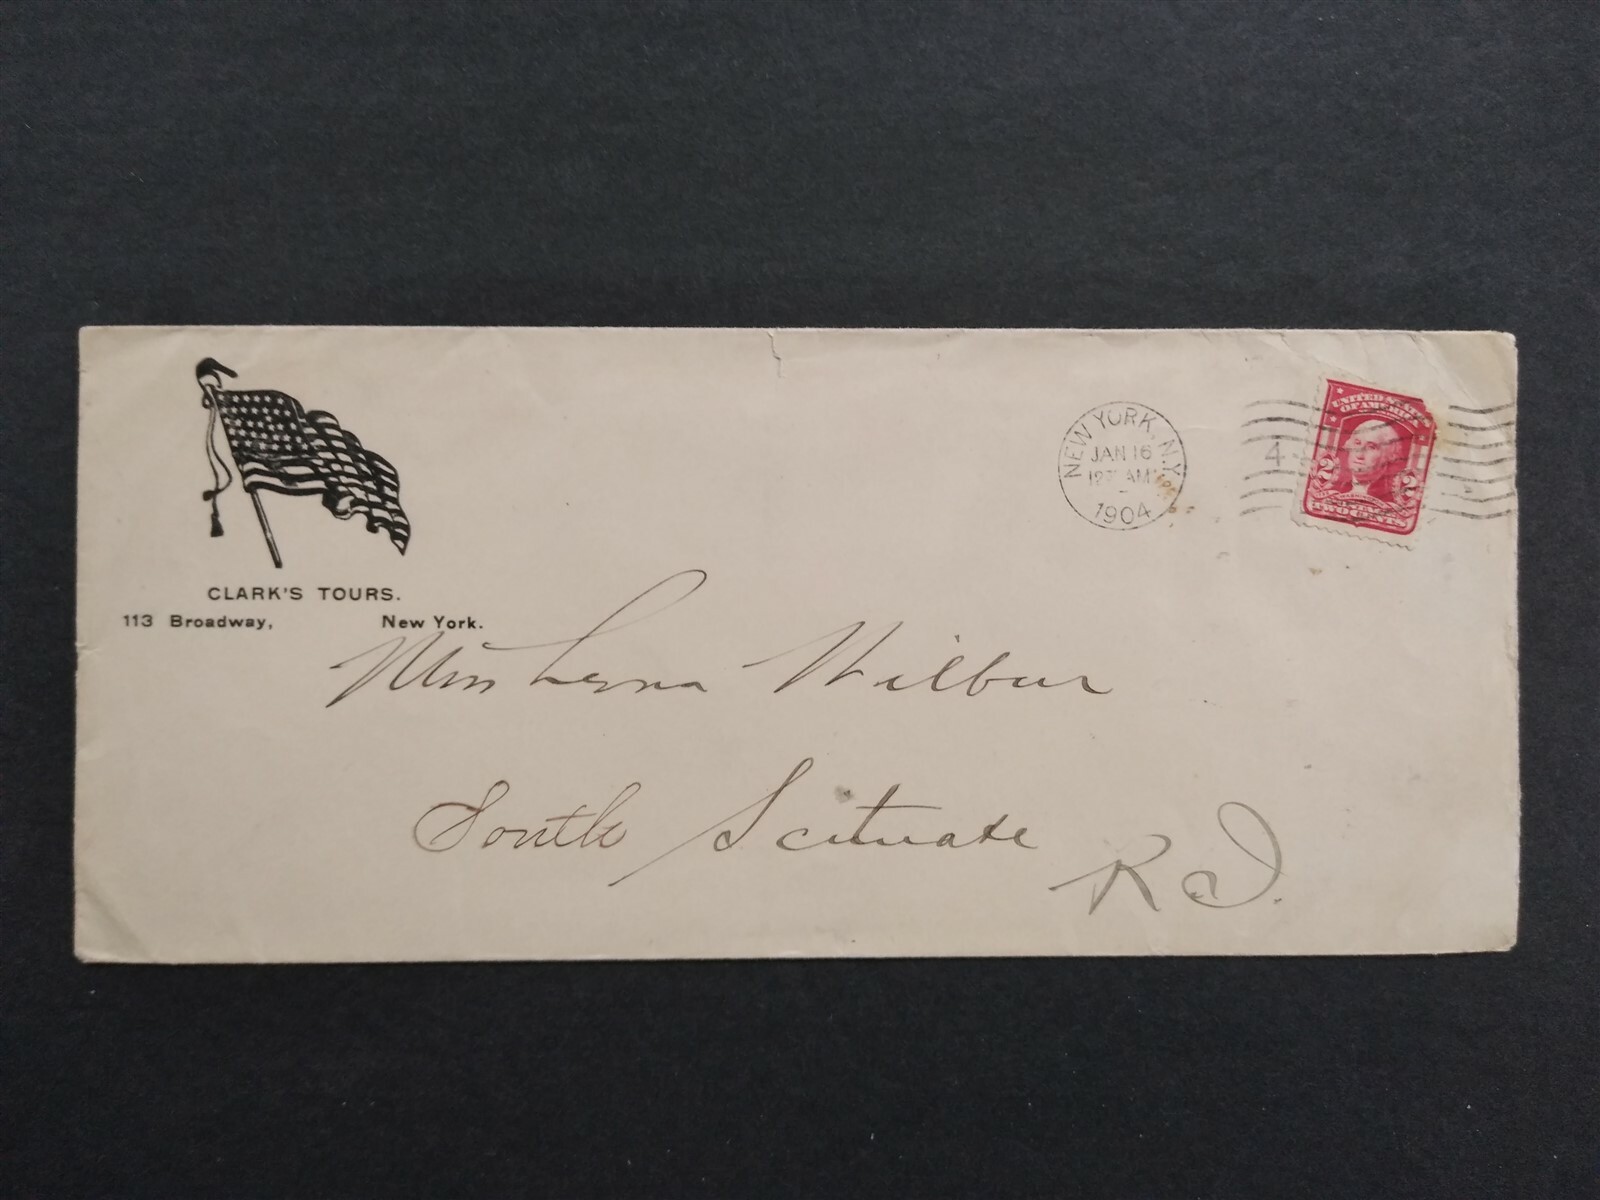 CLARK'S TOURS.
113 Broadway, New York.
NEW YORK, N.Y.
JAN 16
12 AM
1904
4
UNITED STATES
OF AMERICA
2 2
TWO CENTS
Miss Lena Wilbur
South Scituate
R I.